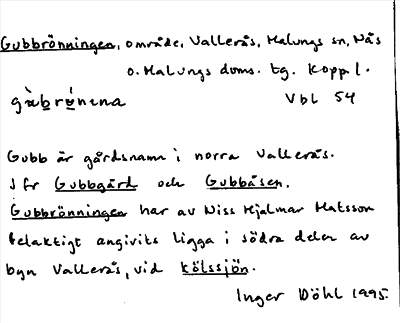 Gubbrönningen, område, Vallerås, Malungs sn, Nås
o. Malungs doms. tg. Kopp. l.
gùbrǿnina Vbl 54
Gubb är gårdsnamn i norra Vallerås.
Jfr Gubbgård och Gubbåsen.
Gubbrönningen har av Niss Hjalmar Matsson
felaktigt angivits ligga i södra delen av
byn Vallerås, vid Kölssjön.
Inger Döhl 1995.